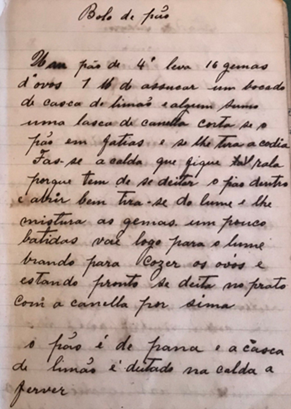 Bolo de pão
Um pão de 4ª leva 16 gemas
d'ovos 1 lb d assucar um bocado
de casca de limão e algum sumo
uma lasca de canella corta se o
pão em fatias e se lhe tira a codia
Fas-se a calda que fique rala
porque tem de se deitar o pão dentro
e abrir bem tira-se do lume e lhe
mistura as gemas um pouco
batidas vai logo para o lume
brando para cozer os ovos e
estando pronto se deita no prato
com a canella por sima
o pão é de pana e a casca
de limão é deitado na calda a
ferver